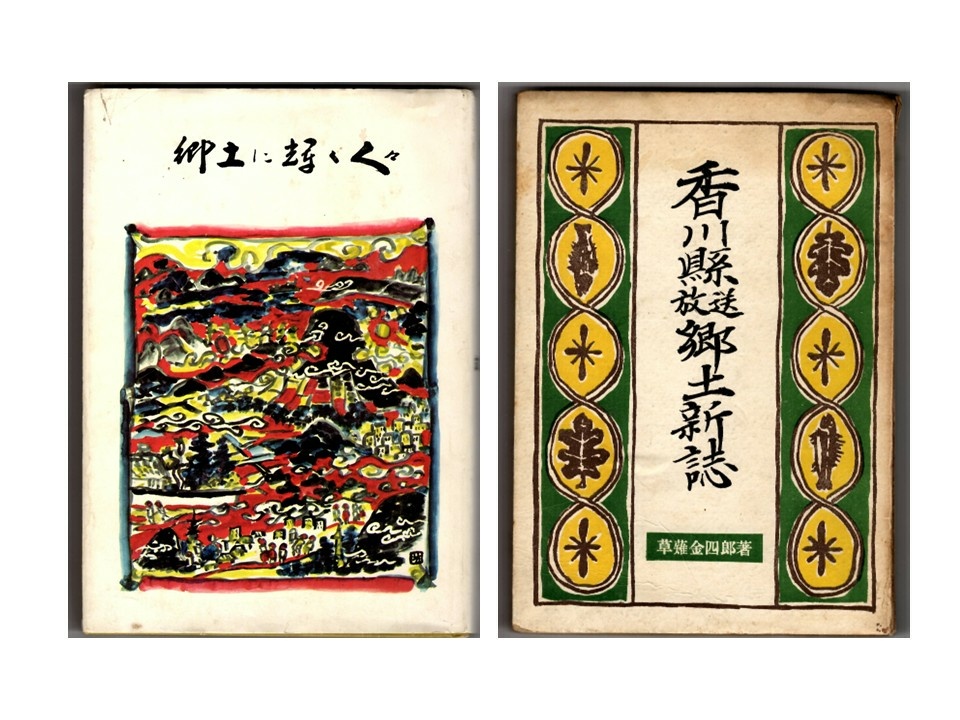 郷土に輝く人々
香川縣
放送
郷土新誌
草薙金四郎著